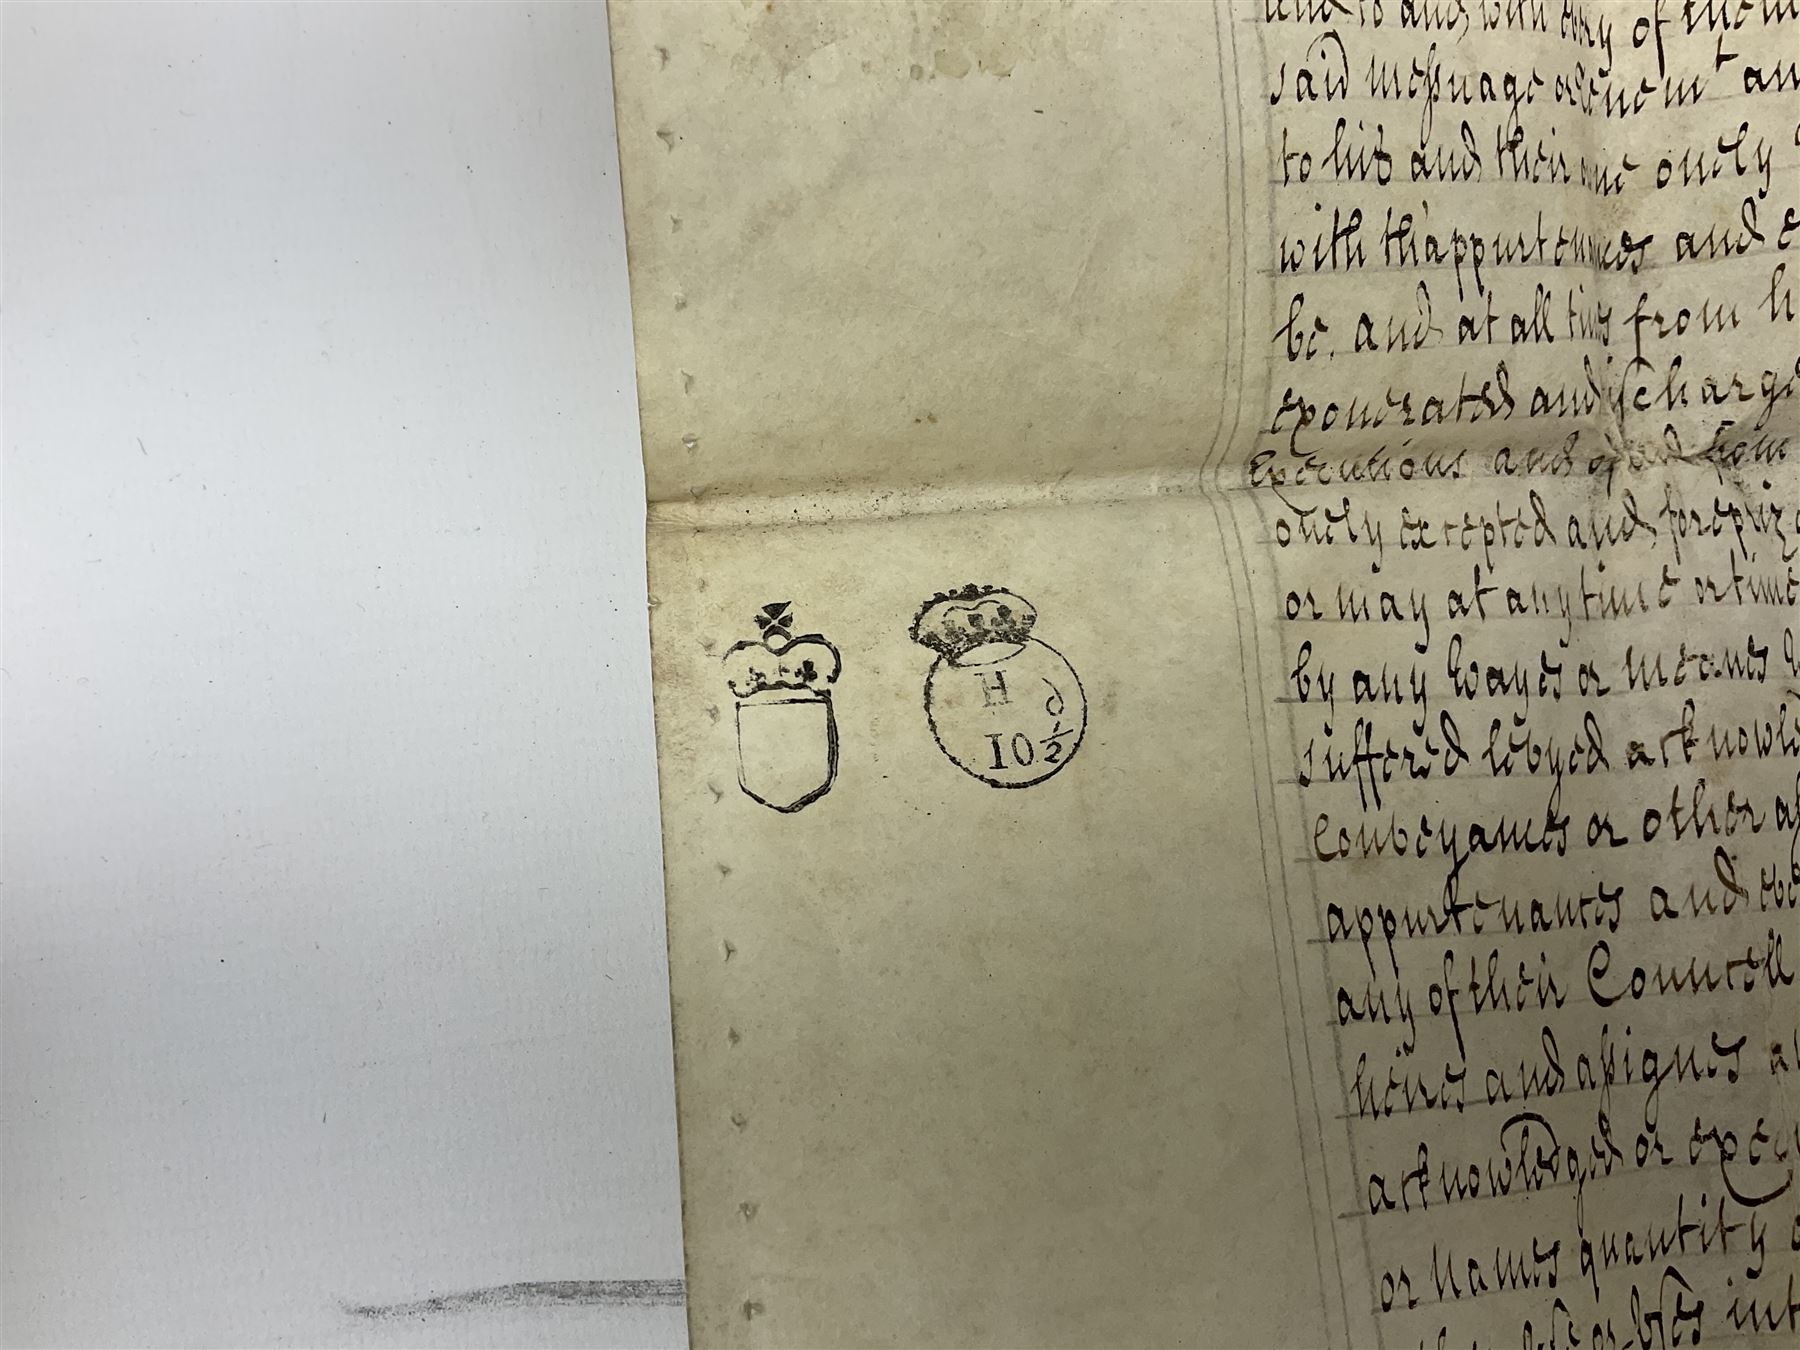 lend to and with every of them
said messuage or tenemt an
to his and their owne onely
with th'appurtenances and e
be. and at all times from h
exonerated and discharge
Executions and of and from
onely excepted and foreprized
or may at any time or times
by any wayes or meanes
suffered levyed acknowled
Conveyances or other ass
appurtenances and eve
any of their Councell
heires and assignes a
acknowledged or execu
or names quantity o
int
H
d
10 1/2